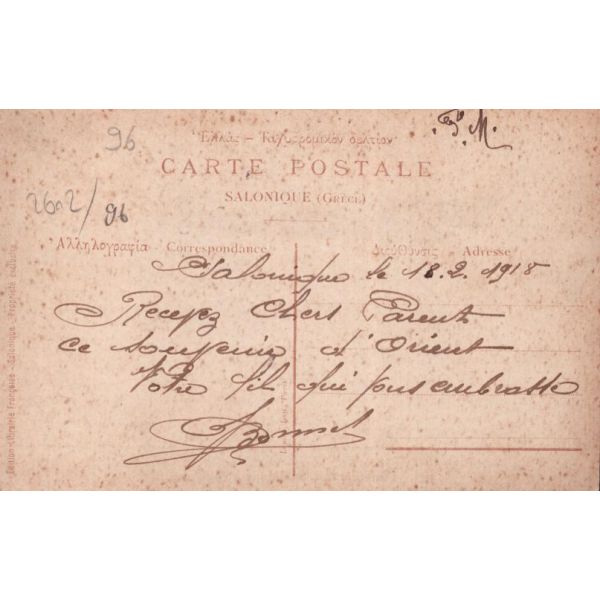 96
F. M.
Ἑλλάς – Ταχυδρομικὸν δελτάριον
CARTE POSTALE
SALONIQUE (GRÈCE)
2602/96
Ἀλληλογραφία Correspondance
Διεύθυνσις Adresse
Salonique le 18.2.1918
Recepez Chers Parents
ce soupenir d'Orient
Votre fils qui vous embrasse
Edition Librairie Française - Salonique - Propriété exclusive